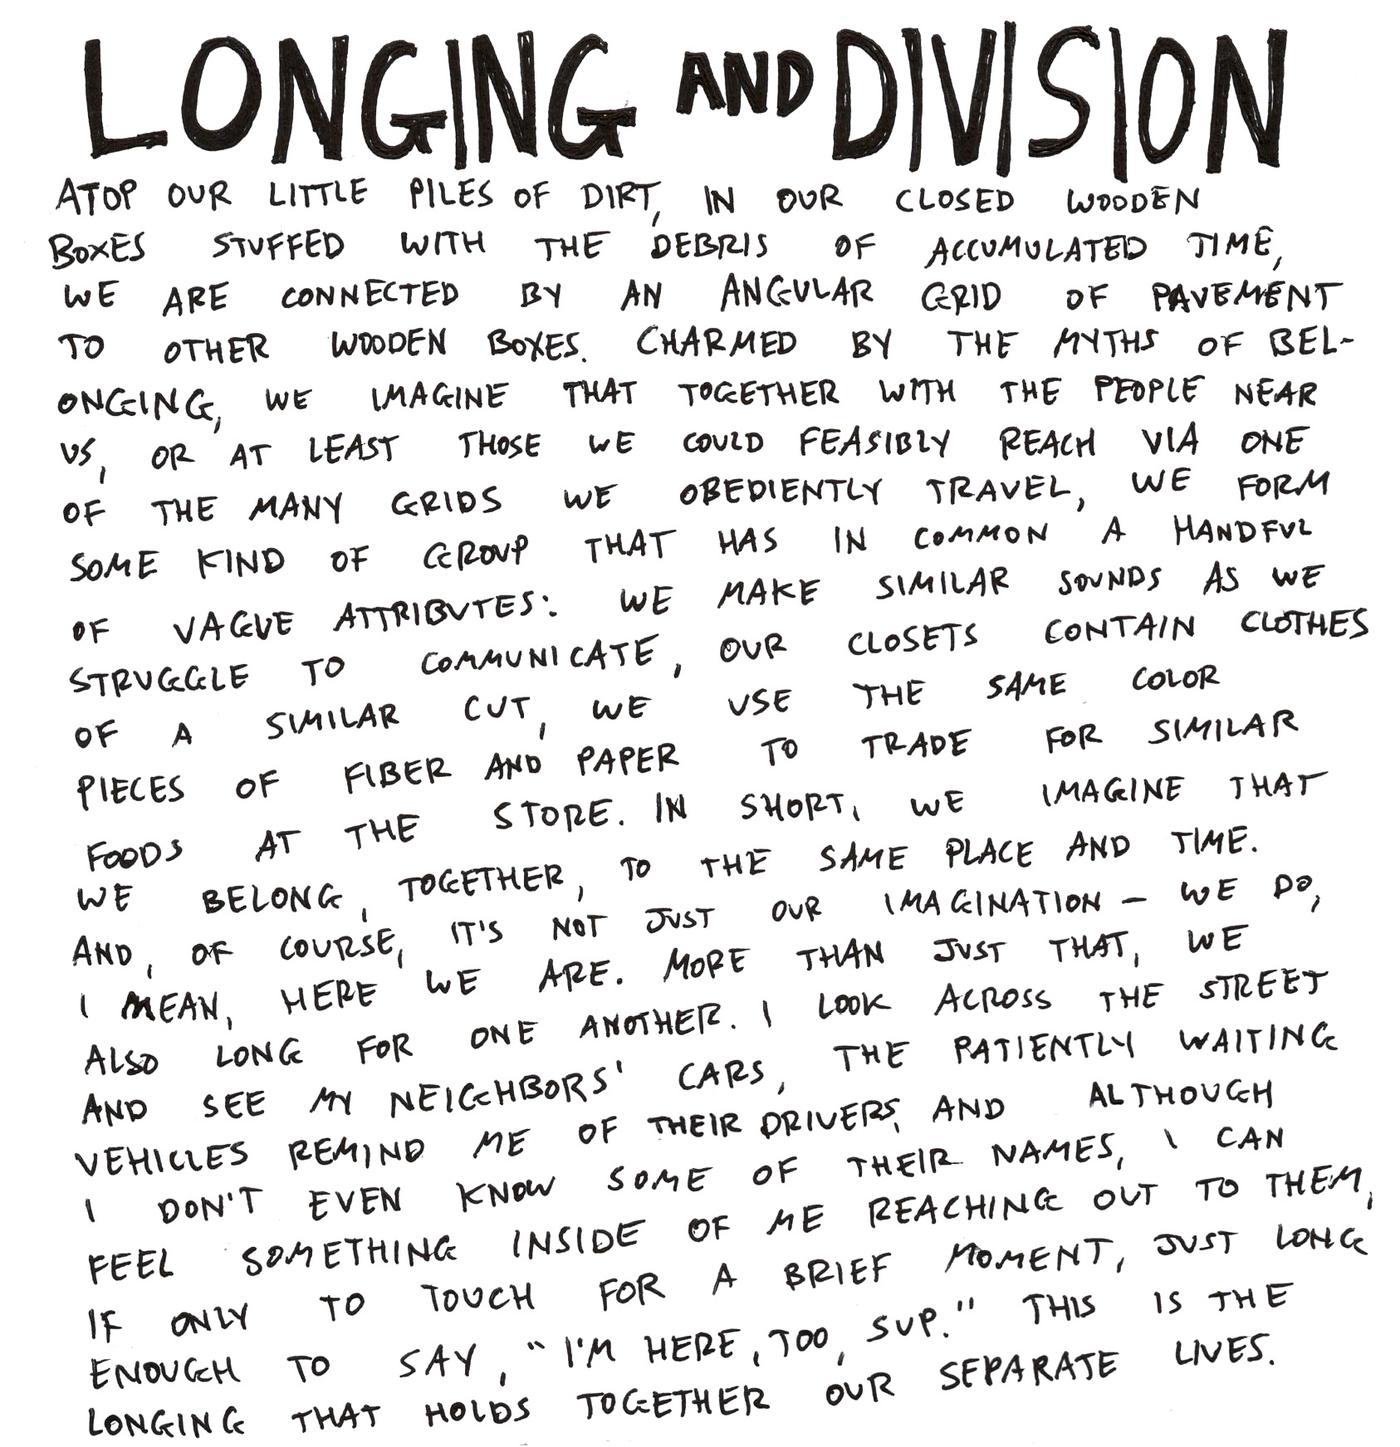 LONGING AND DIVISION
ATOP OUR LITTLE PILES OF DIRT, IN OUR CLOSED WOODEN
BOXES STUFFED WITH THE DEBRIS OF ACCUMULATED TIME,
WE ARE CONNECTED BY AN ANGULAR GRID OF PAVEMENT
TO OTHER WOODEN BOXES. CHARMED BY THE MYTHS OF BEL-
ONGING, WE IMAGINE THAT TOGETHER WITH THE PEOPLE NEAR
US, OR AT LEAST THOSE WE COULD FEASIBLY REACH VIA ONE
OF THE MANY GRIDS WE OBEDIENTLY TRAVEL, WE FORM
SOME KIND OF GROUP THAT HAS IN COMMON A HANDFUL
OF VAGUE ATTRIBUTES: WE MAKE SIMILAR SOUNDS AS WE
STRUGGLE TO COMMUNICATE, OUR CLOSETS CONTAIN CLOTHES
OF A SIMILAR CUT, WE USE THE SAME COLOR
PIECES OF FIBER AND PAPER TO TRADE FOR SIMILAR
FOODS AT THE STORE. IN SHORT, WE IMAGINE THAT
WE BELONG, TOGETHER, TO THE SAME PLACE AND TIME.
AND, OF COURSE, IT'S NOT JUST OUR IMAGINATION – WE DO,
I MEAN, HERE WE ARE. MORE THAN JUST THAT, WE
ALSO LONG FOR ONE ANOTHER. I LOOK ACROSS THE STREET
AND SEE MY NEIGHBORS' CARS, THE PATIENTLY WAITING
VEHICLES REMIND ME OF THEIR DRIVERS, AND ALTHOUGH
I DON'T EVEN KNOW SOME OF THEIR NAMES, I CAN
FEEL SOMETHING INSIDE OF ME REACHING OUT TO THEM,
IF ONLY TO TOUCH FOR A BRIEF MOMENT, JUST LONG
ENOUGH TO SAY, "I'M HERE, TOO, SUP." THIS IS THE
LONGING THAT HOLDS TOGETHER OUR SEPARATE LIVES.